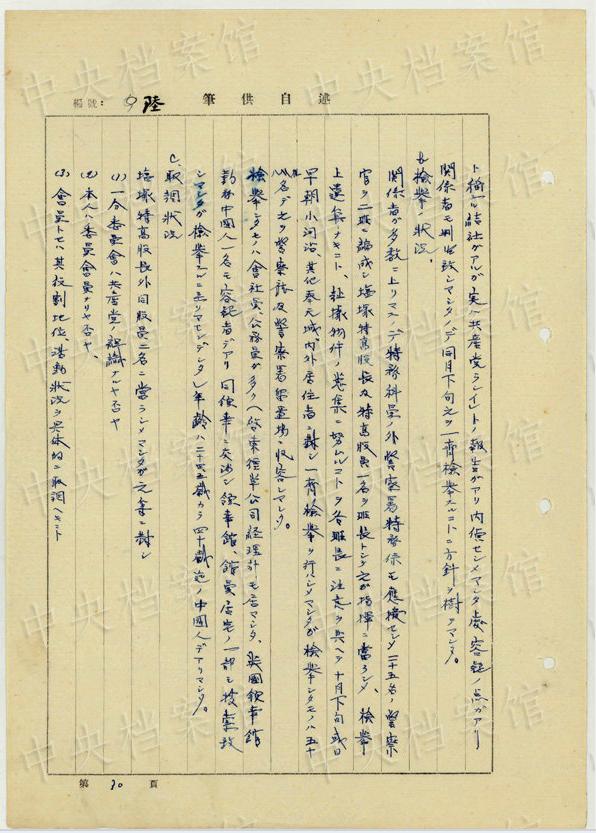 述自供筆
編號: 陸
ト称スル結社ガアルガ実ハ共産党ラシイ」トノ報告ガアリ内偵セシメマシタ處容疑ノ点ガアリ
関係者モ判明致シマシタノデ同月下旬之ヲ一齊検挙スルコトニ方針ヲ樹テマシタ。
B、検挙ノ状況、
関係者ガ多数ニ上リマスノデ特務科員ノ外警察署特務係モ應援セシメ二十五名ノ警察
官ヲ二班ニ編成シ塩塚特高股長及特高股員一名ヲ班長トシ之ガ指揮ニ當ラシメ、検挙
上遺憾ナキコト、証據物件ノ蒐集ニ努ムルコトヲ各班長ニ注意ヲ與ヘテ十月下旬或日
早朝小河沿、其他奉天城内外居住者ニ對シ一齊検挙ヲ行ハシメマシタガ検挙シタモノハ五十
名デ之ヲ警察廳及警察署留置場ニ収容シマシタ。
検挙シタモノハ會社員、公務員ガ多ク(啓東煙草公司経理計モ居マシタ、英國領事館
勤務中國人一名モ容疑者デアリ同領事ニ交渉シ領事館、館員居宅ノ一部モ捜索致
シマシタガ検挙スルニ至リマセンデシタ)年齢ハ二十四五歳カラ四十歳迄ノ中國人デアリマシタ。
C、取調状況
塩塚特高股長外同股員二名ニ當ラシメマシタガ之等ニ對シ
(1) 一、合委員會ハ共産党ノ組織ナルヤ否ヤ
(2) 本人ハ委員會員ナリヤ否ヤ、
(3) 會員トセバ其役割地位、活動状況ヲ具体的ニ取調ヘキコト
第 30 頁